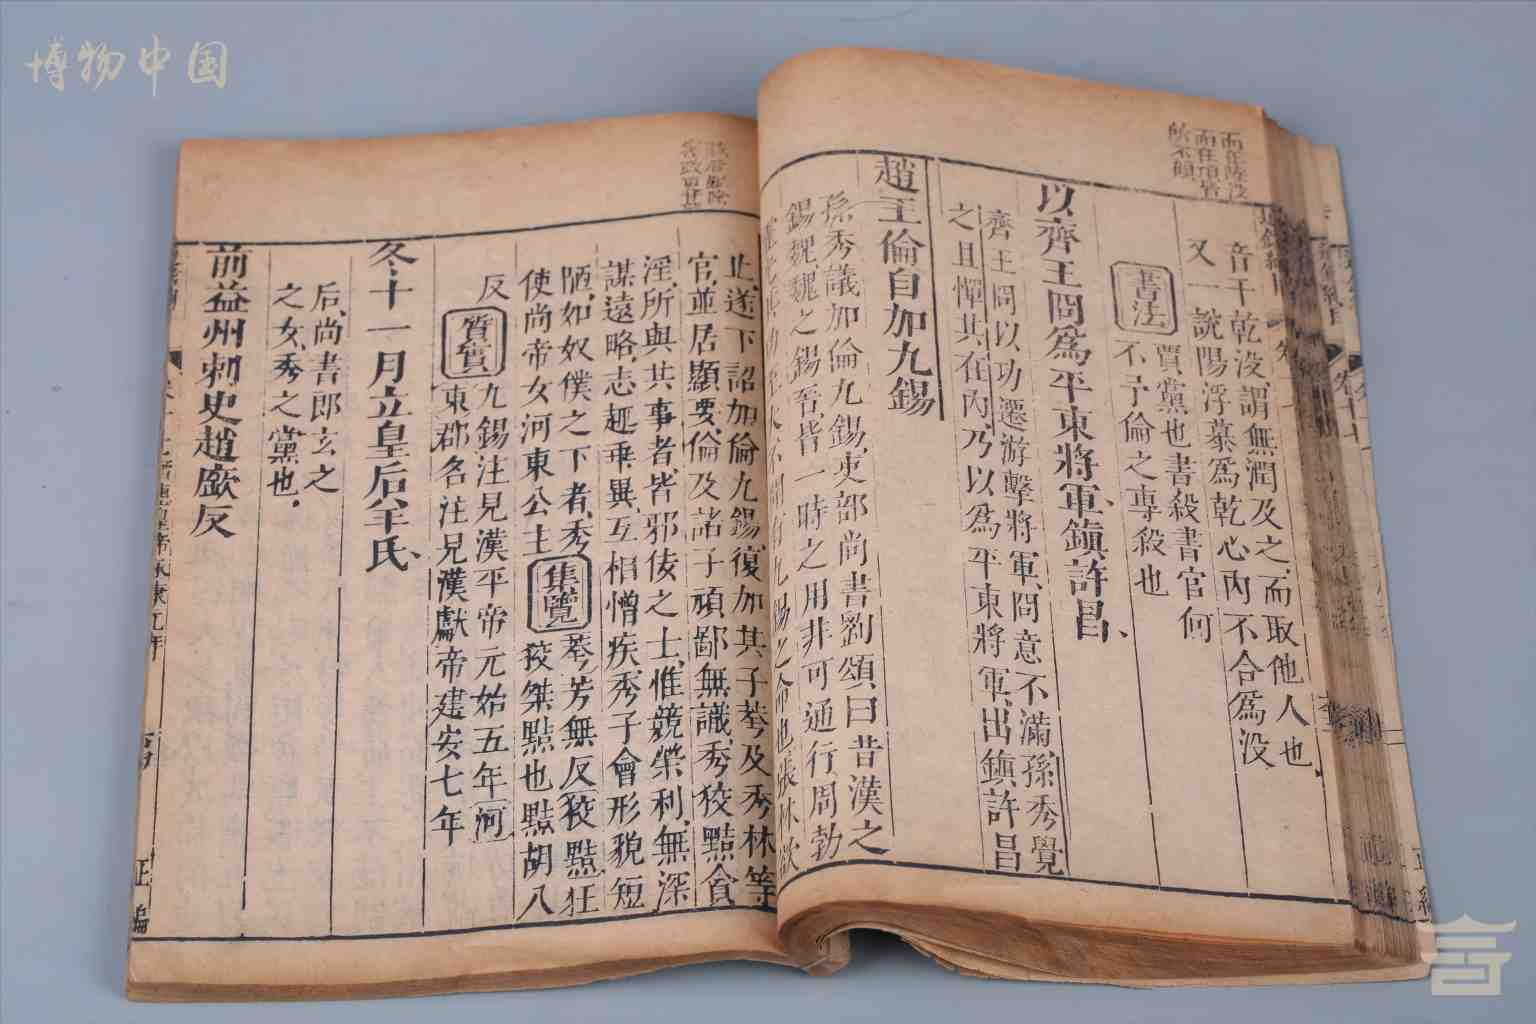 博物中国
而在陸沒
而在頂皆
音干乾没謂無潤及之而取他人也
又一説陽浮慕爲乾心内不合爲没
書法
賈黨也書殺書官何
不予倫之專殺也
以齊王冏爲平東將軍鎮許昌
齊王冏以功遷游擊將軍冏意不滿孫秀覺
之且憚其在内乃以爲平東將軍出鎮許昌
趙王倫自加九錫
孫秀議加倫九錫吏部尚書劉頌曰昔漢之
錫魏魏之錫晉皆一時之用非可通行周勃
止遂下詔加倫九錫復加其子荂及秀林等
官並居顯要倫及諸子頑鄙無識秀狡黠貪
淫所與共事者皆邪佞之士惟競榮利無深
謀遠略志趣乖異互相憎疾秀子會形貌短
陋如奴僕之下者秀
使尚帝女河東公主
集覽
荂芳無反狡黠狂
狡桀黠也黠胡八
反
質實
九錫注見漢平帝元始五年河
東郡名注見漢獻帝建安七年
冬十一月立皇后羊氏
后尚書郎玄之
之女秀之黨也
前益州刺史趙廞反
正編